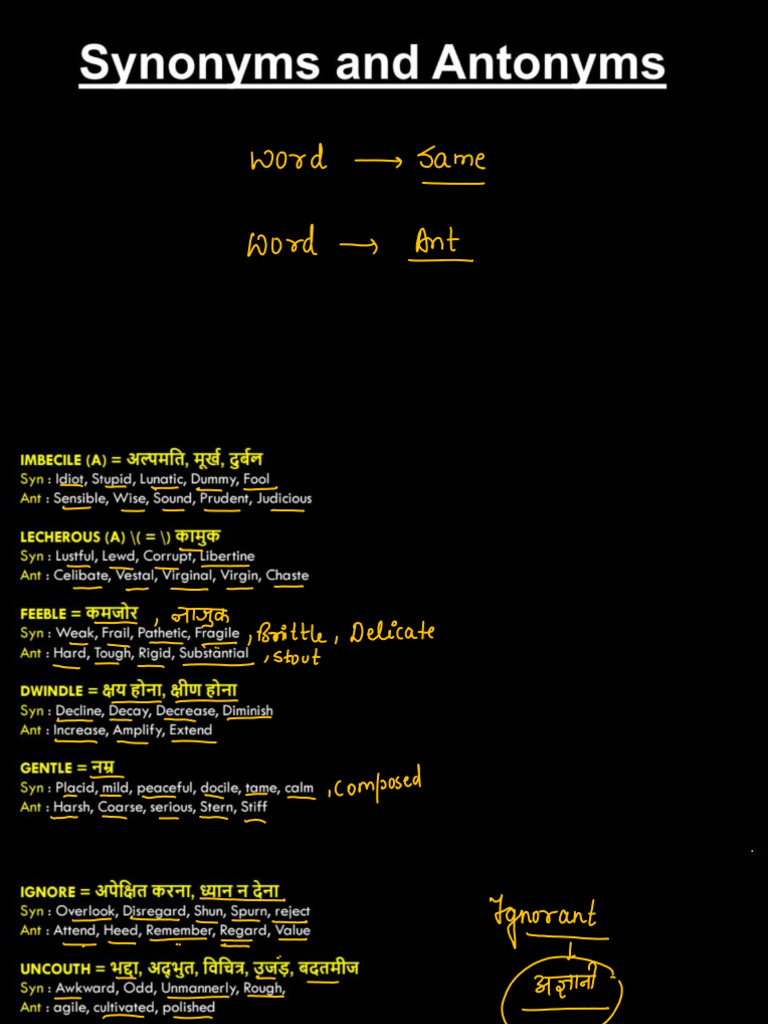 Synonyms and Antonyms
Word → Same
Word → Ant
IMBECILE (A) = अल्पमति, मूर्ख, दुर्बल
Syn : Idiot, Stupid, Lunatic, Dummy, Fool
Ant : Sensible, Wise, Sound, Prudent, Judicious
LECHEROUS (A) \( = \) कामुक
Syn : Lustful, Lewd, Corrupt, Libertine
Ant : Celibate, Vestal, Virginal, Virgin, Chaste
FEEBLE = कमजोर , नाजुक
Syn : Weak, Frail, Pathetic, Fragile , Brittle , Delicate
Ant : Hard, Tough, Rigid, Substantial , Stout
DWINDLE = क्षय होना, क्षीण होना
Syn : Decline, Decay, Decrease, Diminish
Ant : Increase, Amplify, Extend
GENTLE = नम्र
Syn : Placid, mild, peaceful, docile, tame, calm , Composed
Ant : Harsh, Coarse, serious, Stern, Stiff
IGNORE = अपेक्षित करना, ध्यान न देना
Syn : Overlook, Disregard, Shun, Spurn, reject
Ant : Attend, Heed, Remember, Regard, Value
Ignorant
अज्ञानी
UNCOUTH = भद्दा, अद्भुत, विचित्र, उजड़, बदतमीज
Syn : Awkward, Odd, Unmannerly, Rough,
Ant : agile, cultivated, polished